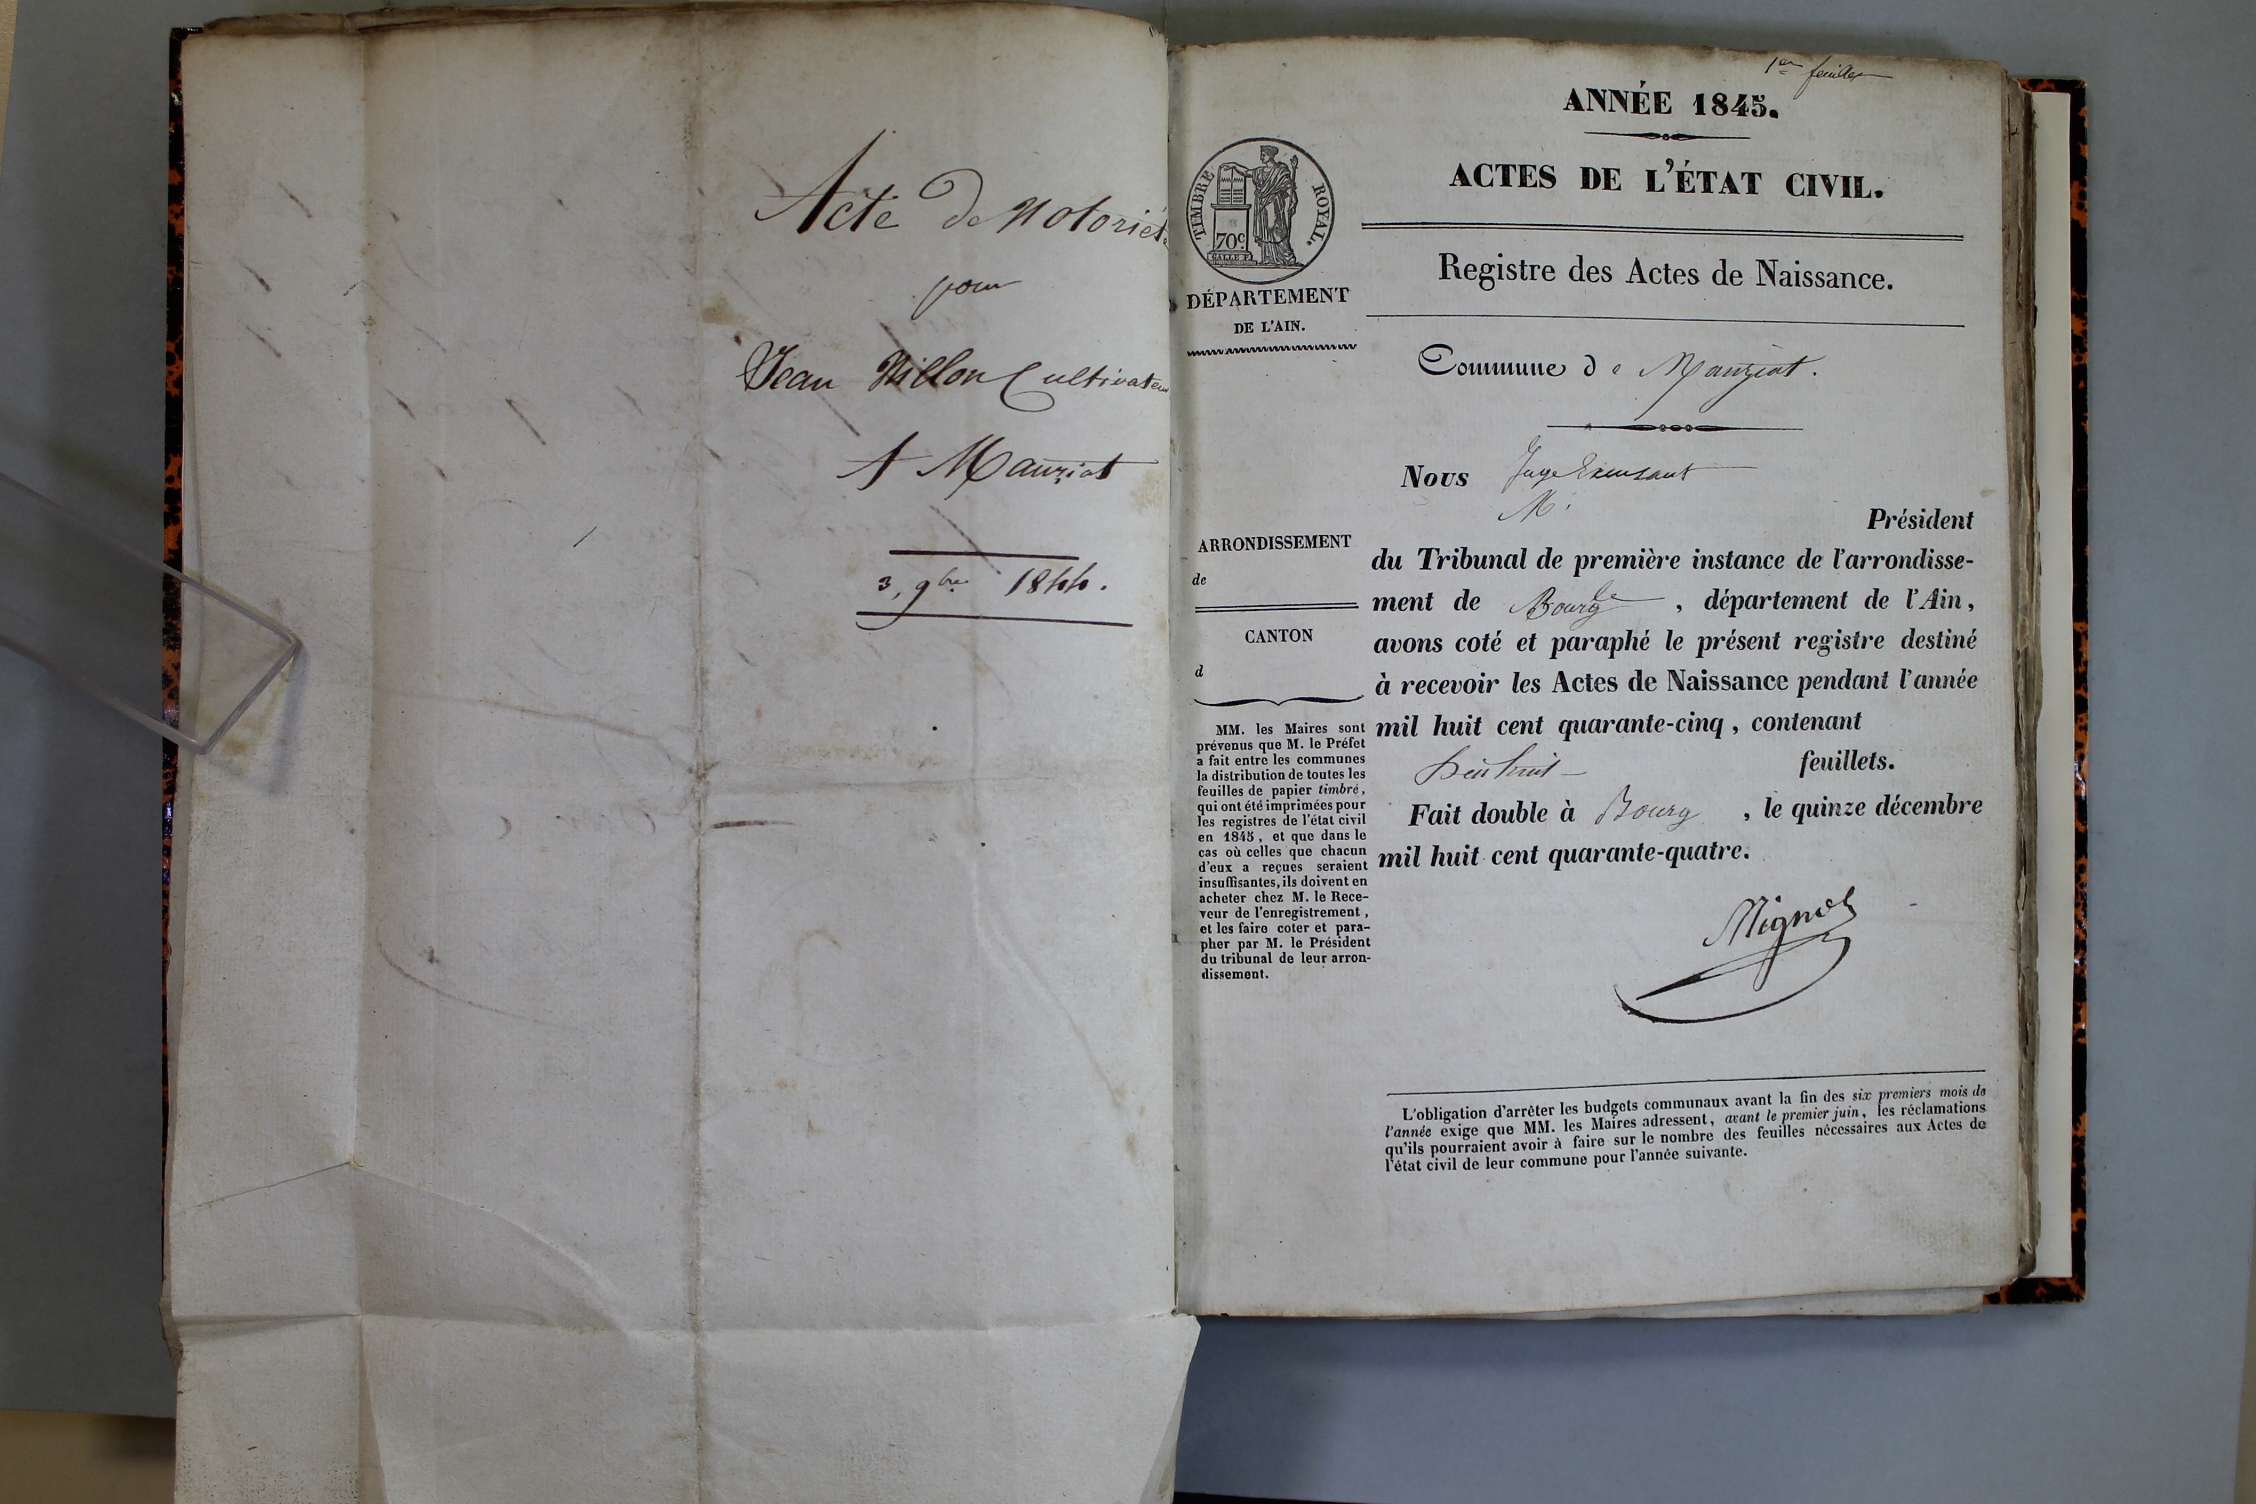 Acte de Notoriété
pour
Jean Nillon Cultivateur
A Manziat
3, 9bre 1844.
1er feuillet
ANNÉE 1845.
ACTES DE L'ÉTAT CIVIL.
TIMBRE ROYAL.
70c
DÉPARTEMENT
DE L'AIN.
Registre des Actes de Naissance.
Commune de Manziat.
ARRONDISSEMENT
de
CANTON
d
MM. les Maires sont
prévenus que M. le Préfet
a fait entre les communes
la distribution de toutes les
feuilles de papier timbré,
qui ont été imprimées pour
les registres de l'état civil
en 1845, et que dans le
cas où celles que chacun
d'eux a reçues seraient
insuffisantes, ils doivent en
acheter chez M. le Rece-
veur de l'enregistrement,
et les faire coter et para-
pher par M. le Président
du tribunal de leur arron-
dissement.
Nous Juge
Président
du Tribunal de première instance de l'arrondisse-
ment de Bourg, département de l'Ain,
avons coté et paraphé le présent registre destiné
à recevoir les Actes de Naissance pendant l'année
mil huit cent quarante-cinq, contenant
feuillets.
Fait double à Bourg, le quinze décembre
mil huit cent quarante-quatre.
L'obligation d'arrêter les budgets communaux avant la fin des six premiers mois de
l'année exige que MM. les Maires adressent, avant le premier juin, les réclamations
qu'ils pourraient avoir à faire sur le nombre des feuilles nécessaires aux Actes de
l'état civil de leur commune pour l'année suivante.